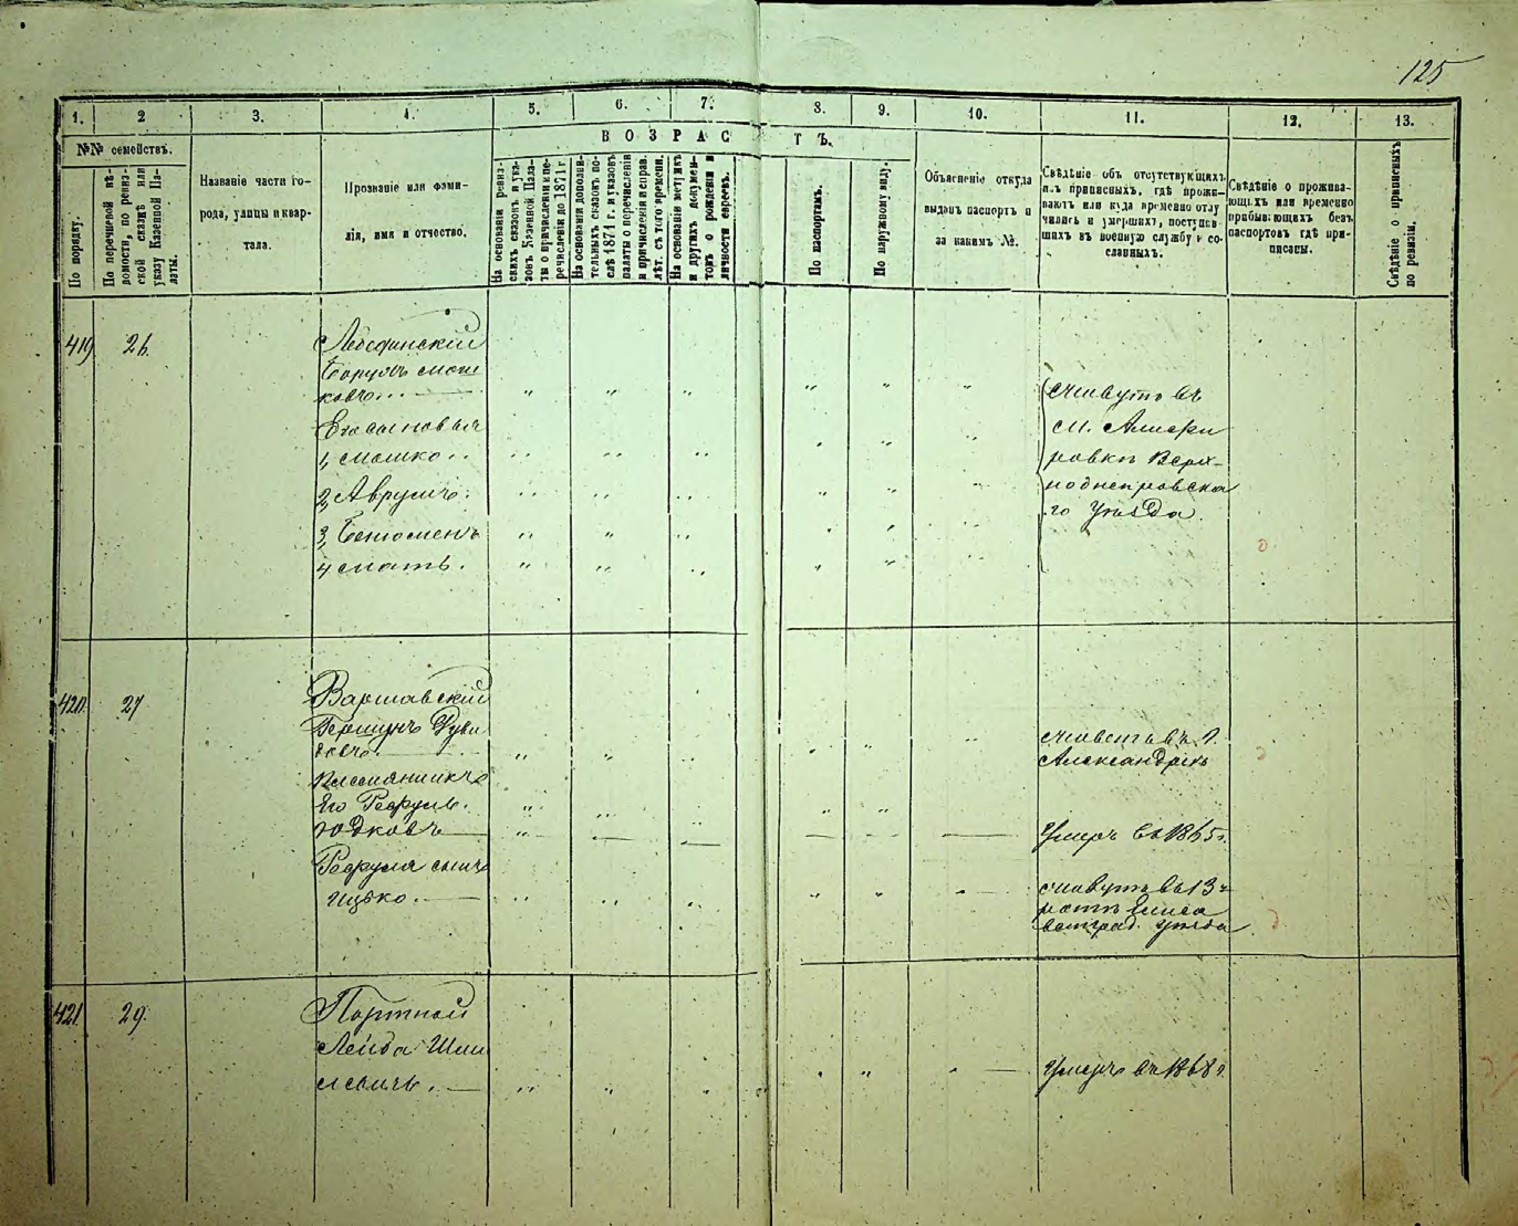 125
1. 2 3. 4. 5. 6. 7. 8. 9. 10. 11. 12. 13.
№№ семействъ.
ВОЗРАСТЪ.
По порядку.
По перечневой вѣ-
домости, по ревиз-
ской сказкѣ или
указу Казенной Па-
латы.
Названіе части го-
рода, улицы и квар-
тала.
Прозваніе или фами-
лія, имя и отчество.
На основаніи ревиз-
скихъ сказокъ и ука-
зовъ Казенной Пала-
ты о причисленіи и пе-
речисленіи до 1871 г.
На основаніи дополни-
тельныхъ сказокъ по-
слѣ 1871 г. и указовъ
палаты о перечисленіи
и причисленіи и справ.
лѣт. съ того времени.
На основаніи метрикъ
и другихъ докумен-
товъ о рожденіи и
личности евреевъ.
По паспортамъ.
По наружному виду.
Объясненіе откуда
выданъ паспортъ и
за какимъ №.
Свѣдѣніе объ отсутствующихъ
изъ приписныхъ, гдѣ прожи-
ваютъ или куда временно отлу
чились и умершихъ, поступив-
шихъ въ военную службу и со-
сланныхъ.
Свѣдѣніе о прожива-
ющихъ или временно
прибывающихъ безъ
паспортовъ гдѣ при-
писаны.
Свѣдѣніе о приписныхъ
по ревизіи.
419 26.
Лебединскій
Борухъ Мош
ковъ
Его сыновья
1, Мошко
2, Аврумъ
3,
4
Живутъ въ
м.
ровкѣ Верх-
нодне­провска
го Уѣзда.
420. 27
Варшавскій
Гершунъ Дуви
довъ
Племянникъ
Его Рефулъ
Юдковъ
Рефула сынъ
Ицко.
Живетъ въ г.
Александріи
Умеръ въ 1865 г.
Живутъ въ 13 й
ротѣ Елиса
ветград. уѣзда
421. 29.
Портной
Лейба Шми
левичъ.
Умеръ въ 1868 г.